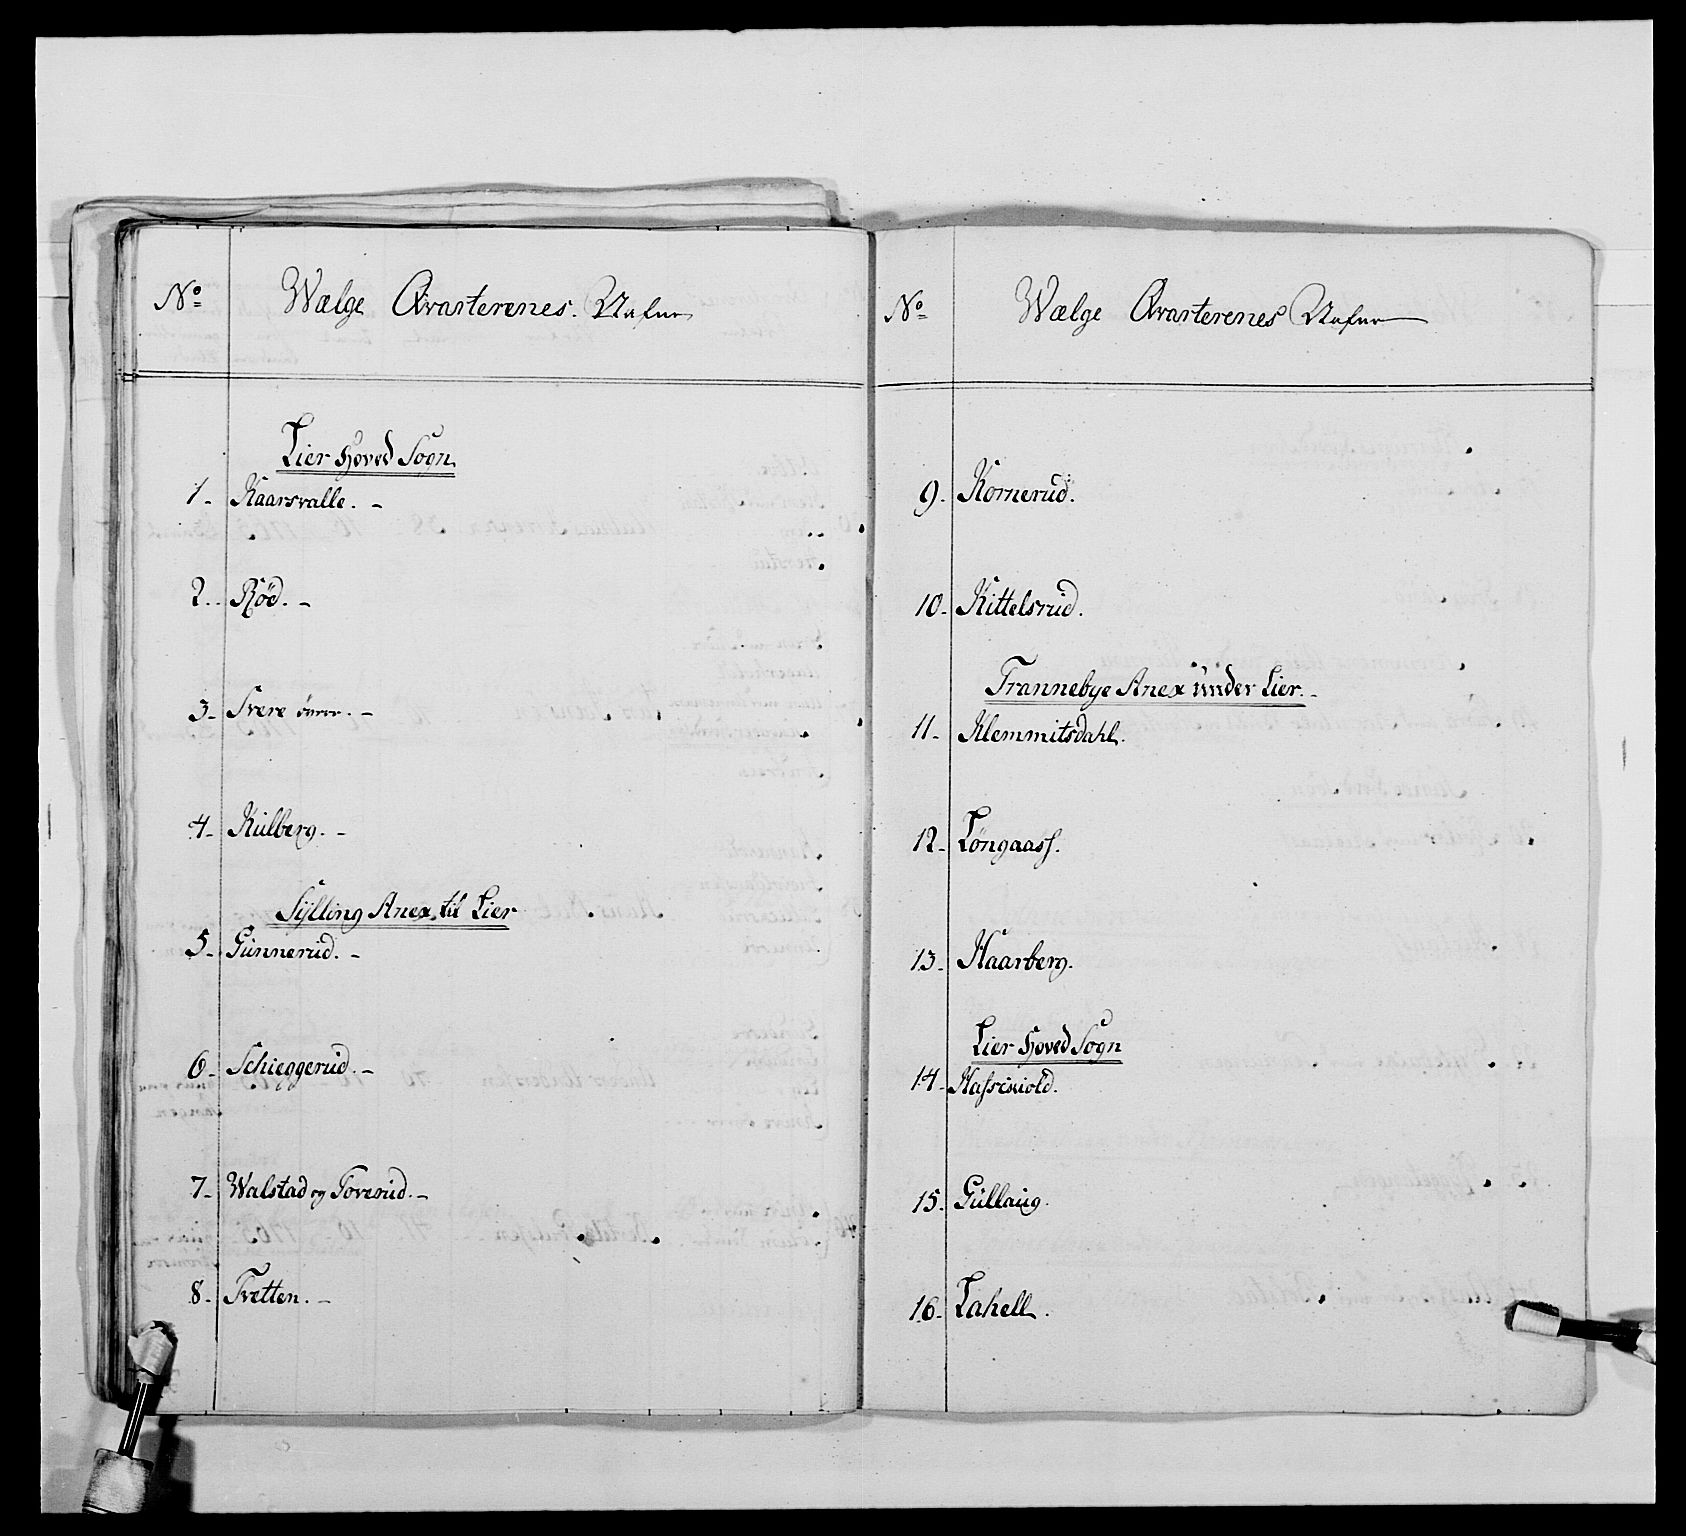 No Wælge Qvarterenes Nafne
Lier Hoved Sogn
1. Kaarsvalle. -
2. Röd. -
3. Svere öwre. -
4. Kulberg. -
Sylling Anex til Lier
5. Gunnerud. -
6. Schieggerud. -
7. Walstad og Toverud. -
8. Tretten. -
No Wælge Qvarterenes Nafne
9. Kornerud.
10. Kittelsrud.
Trannebye Anex under Lier. -
11. Klemmitsdahl.
12. Löngaass.
13. Haarberg.
Lier Hoved Sogn
14.
15. Gullaug.
16. Lahell.